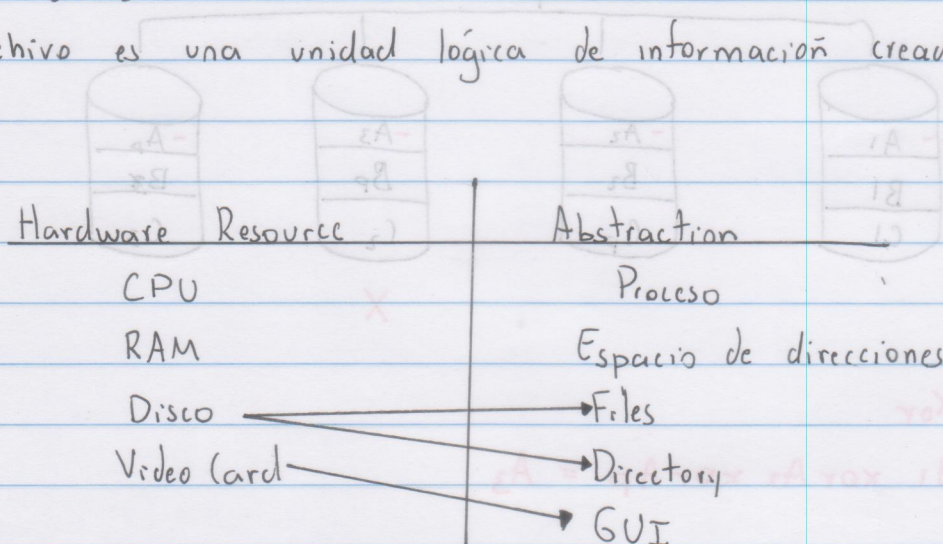 es una unidad lógica de información
Hardware Resource Abstraction
CPU Proceso
RAM Espacio de direcciones
Disco Files
Video Card Directory
GUI